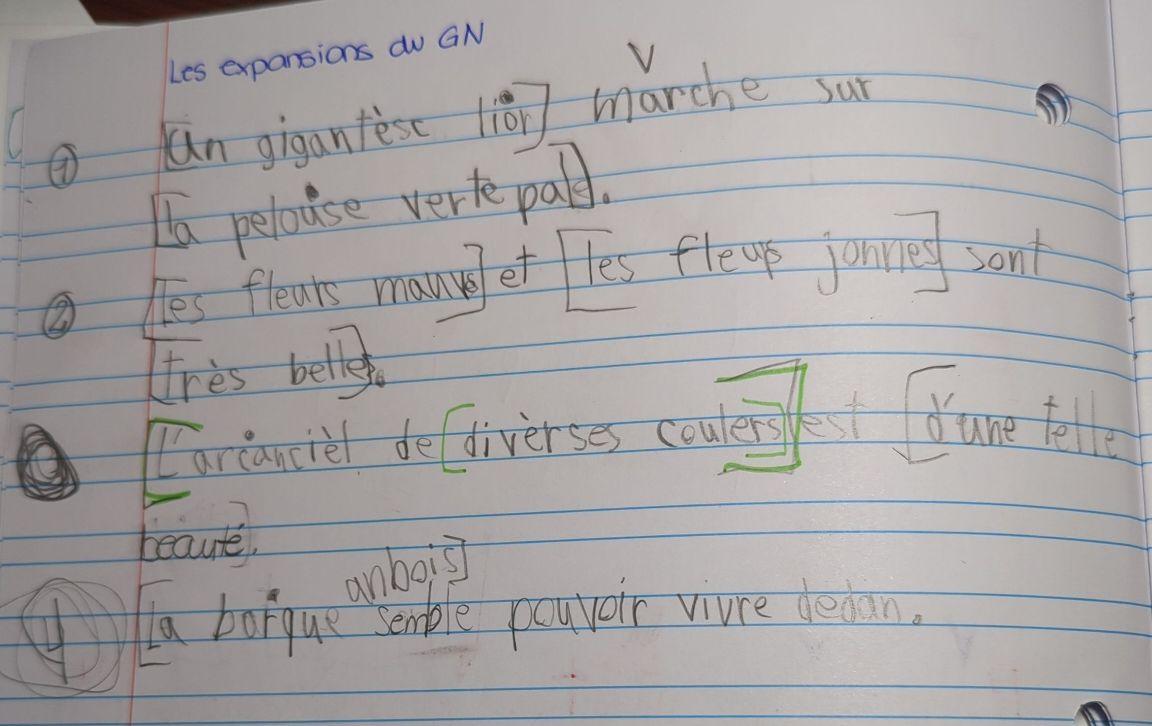 Les expansions du GN
V
① [Un gigantèsc lion] marche sur
[la pelouse verte pale].
② [les fleurs mauvs] et [les fleurs jonnes] sont
[très belles].
[L'arcancièl de [diverses coulers]] est [d'une telle
beauté].
anbois]
4 [La barque semble pouvoir vivre dedan.